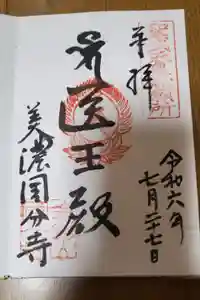 奉拝
令和六年
七月二十七日
医王殿
美濃国分寺